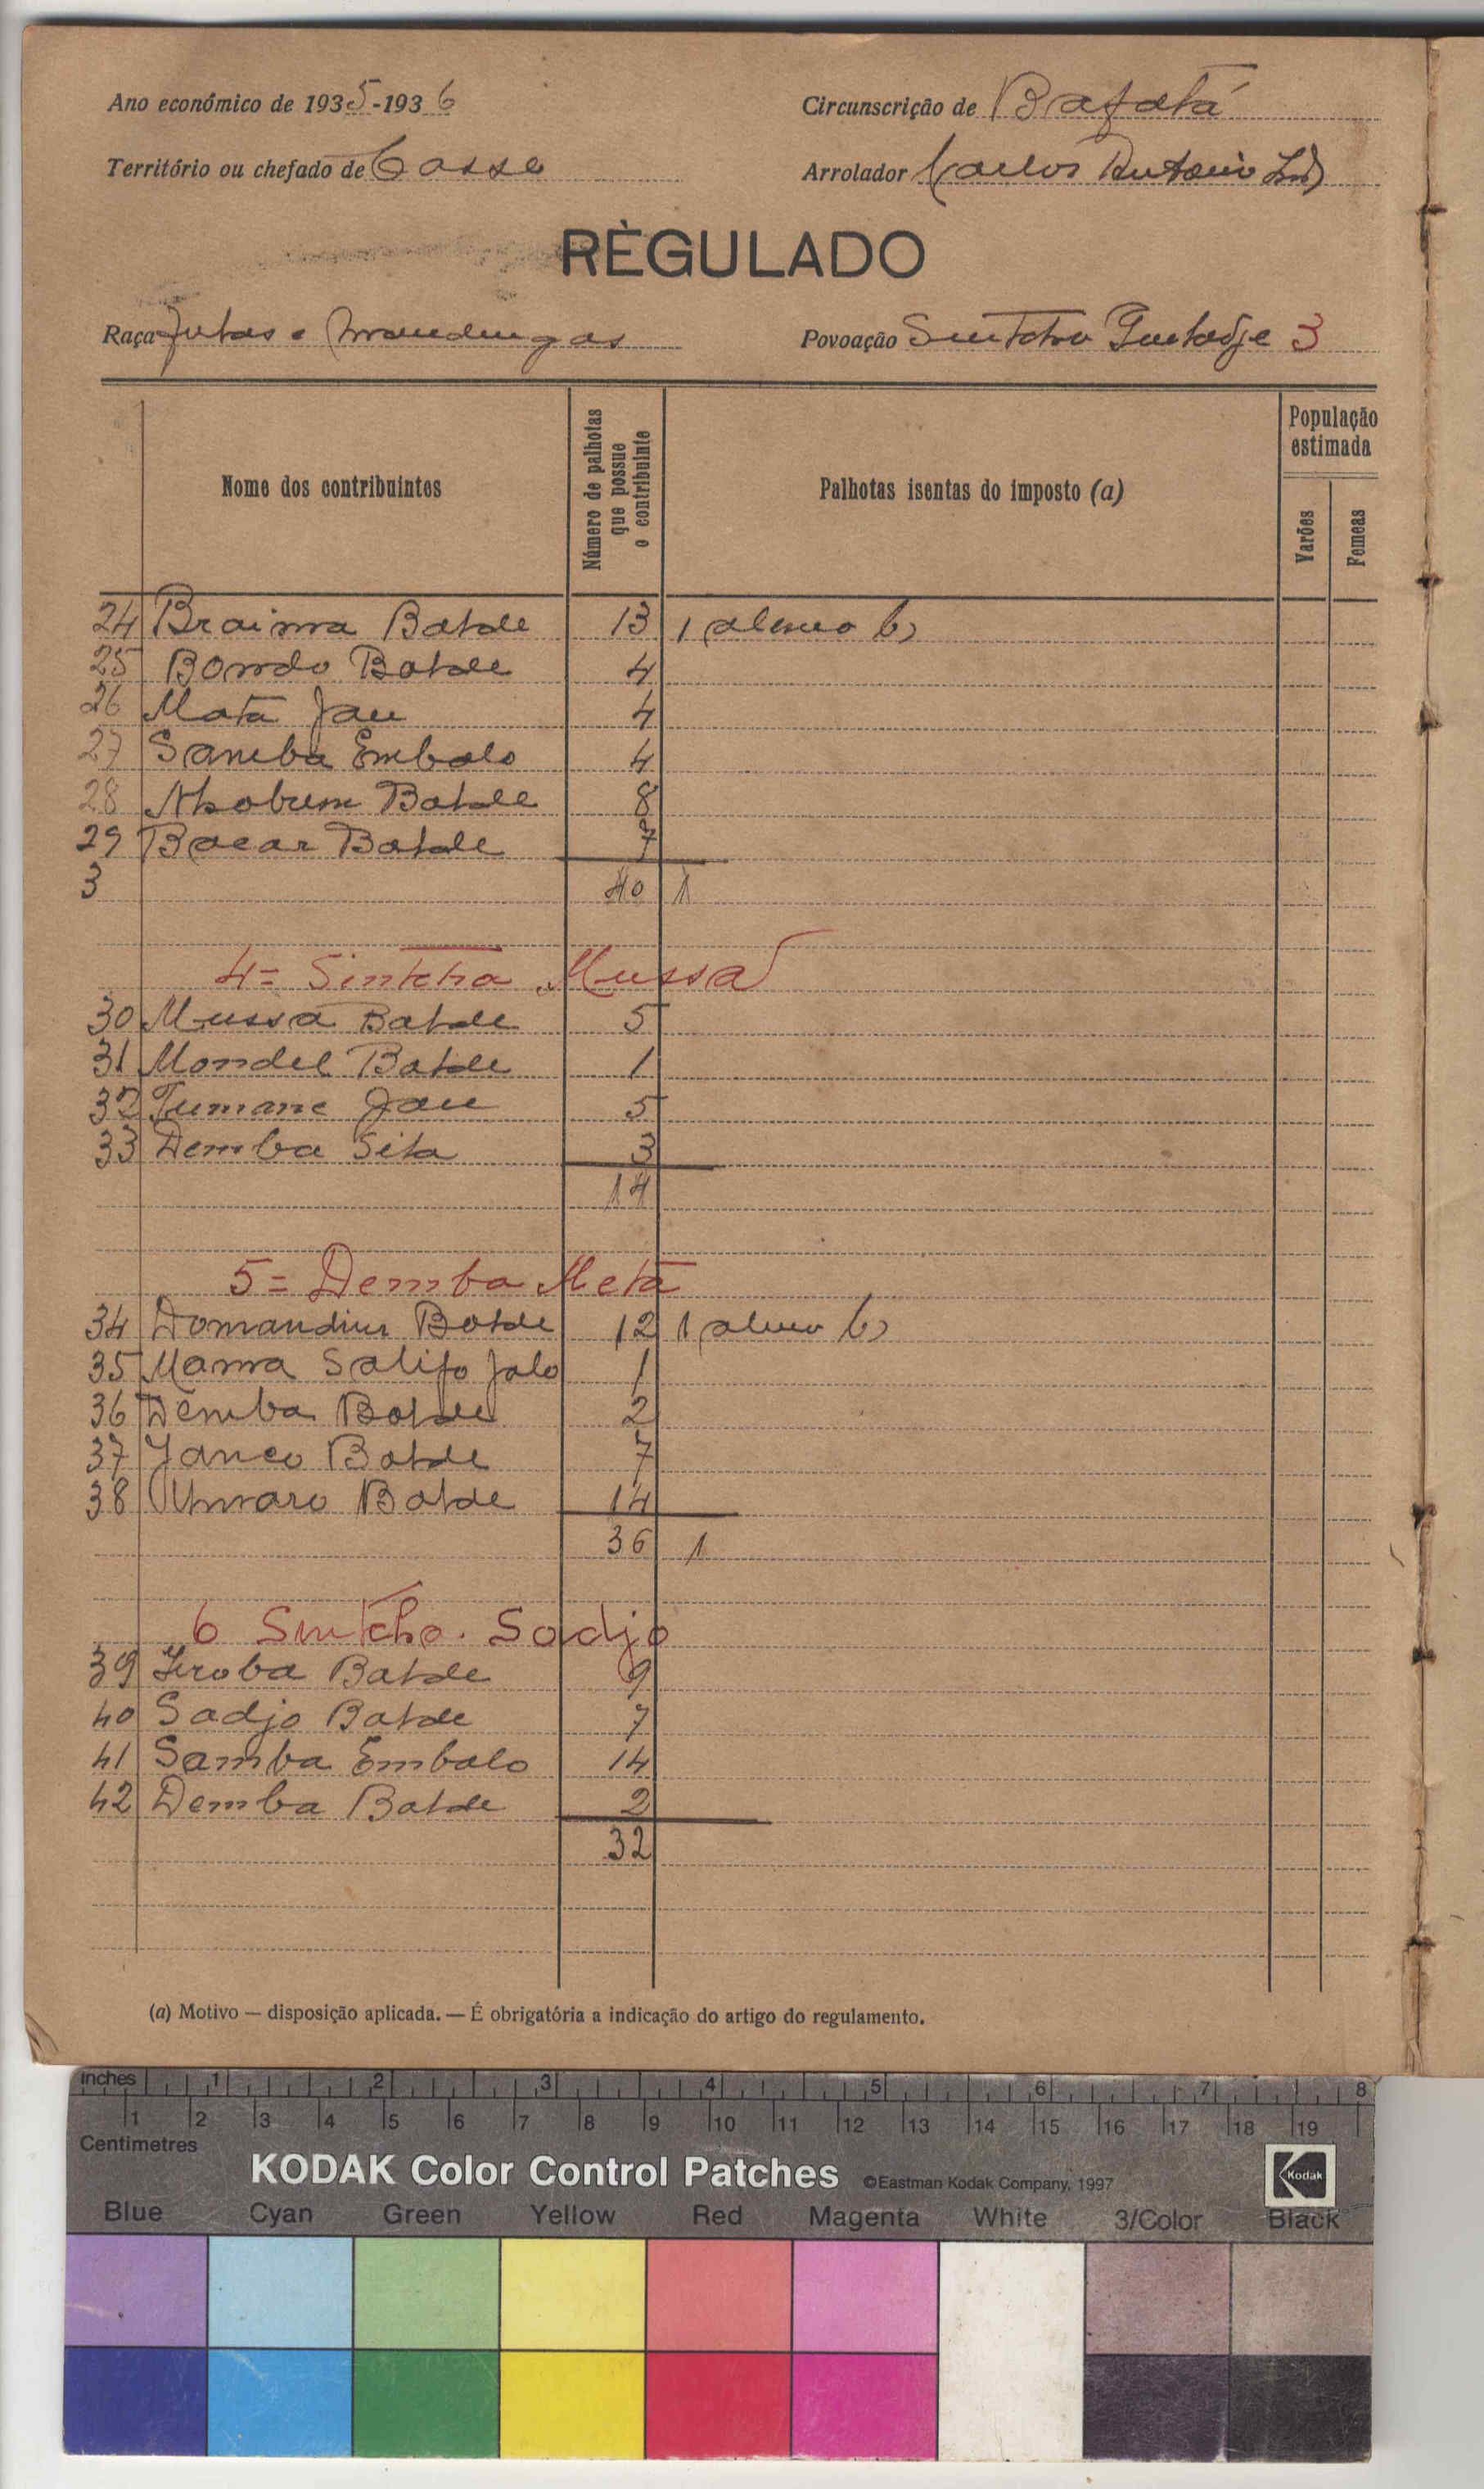 Ano económico de 1935-1936
Circunscrição de Bafatá
Território ou chefado de Cosse
Arrolador Carlos Antonio
RÈGULADO
Raça Fulas e Mandingas
Povoação Sintcha 3
Nome dos contribuintes
Número de palhotas que possue o contribuinte
Palhotas isentas do imposto (a)
População estimada
Varões
Femeas
24 Braima Balde 13 1 b)
25 Bondo Balde 4
26 Mata Jau 4
27 Samba Embalo 4
28 Balde 8
29 Bacar Balde 7
3 40 1
4= Sintcha Mussa
30 Mussa Balde 5
31 Mondel Balde 1
32 Tumane Jau 5
33 Demba Sita 3
14
5= Demba Metá
34 Balde 12 1 b)
35 Mama Salifo Jalo 1
36 Demba Balde 2
37 Janco Balde 7
38 Umaro Balde 14
36 1
6 Sintcha Sadjo
39 Ieroba Balde 9
40 Sadjo Balde 7
41 Samba Embalo 14
42 Demba Balde 2
32
(a) Motivo — disposição aplicada. — É obrigatória a indicação do artigo do regulamento.
inches 1 2 3 4 5 6 7 8
1 2 3 4 5 6 7 8 9 10 11 12 13 14 15 16 17 18 19
Centimetres
KODAK Color Control Patches ©Eastman Kodak Company, 1997 Kodak
Blue Cyan Green Yellow Red Magenta White 3/Color Black